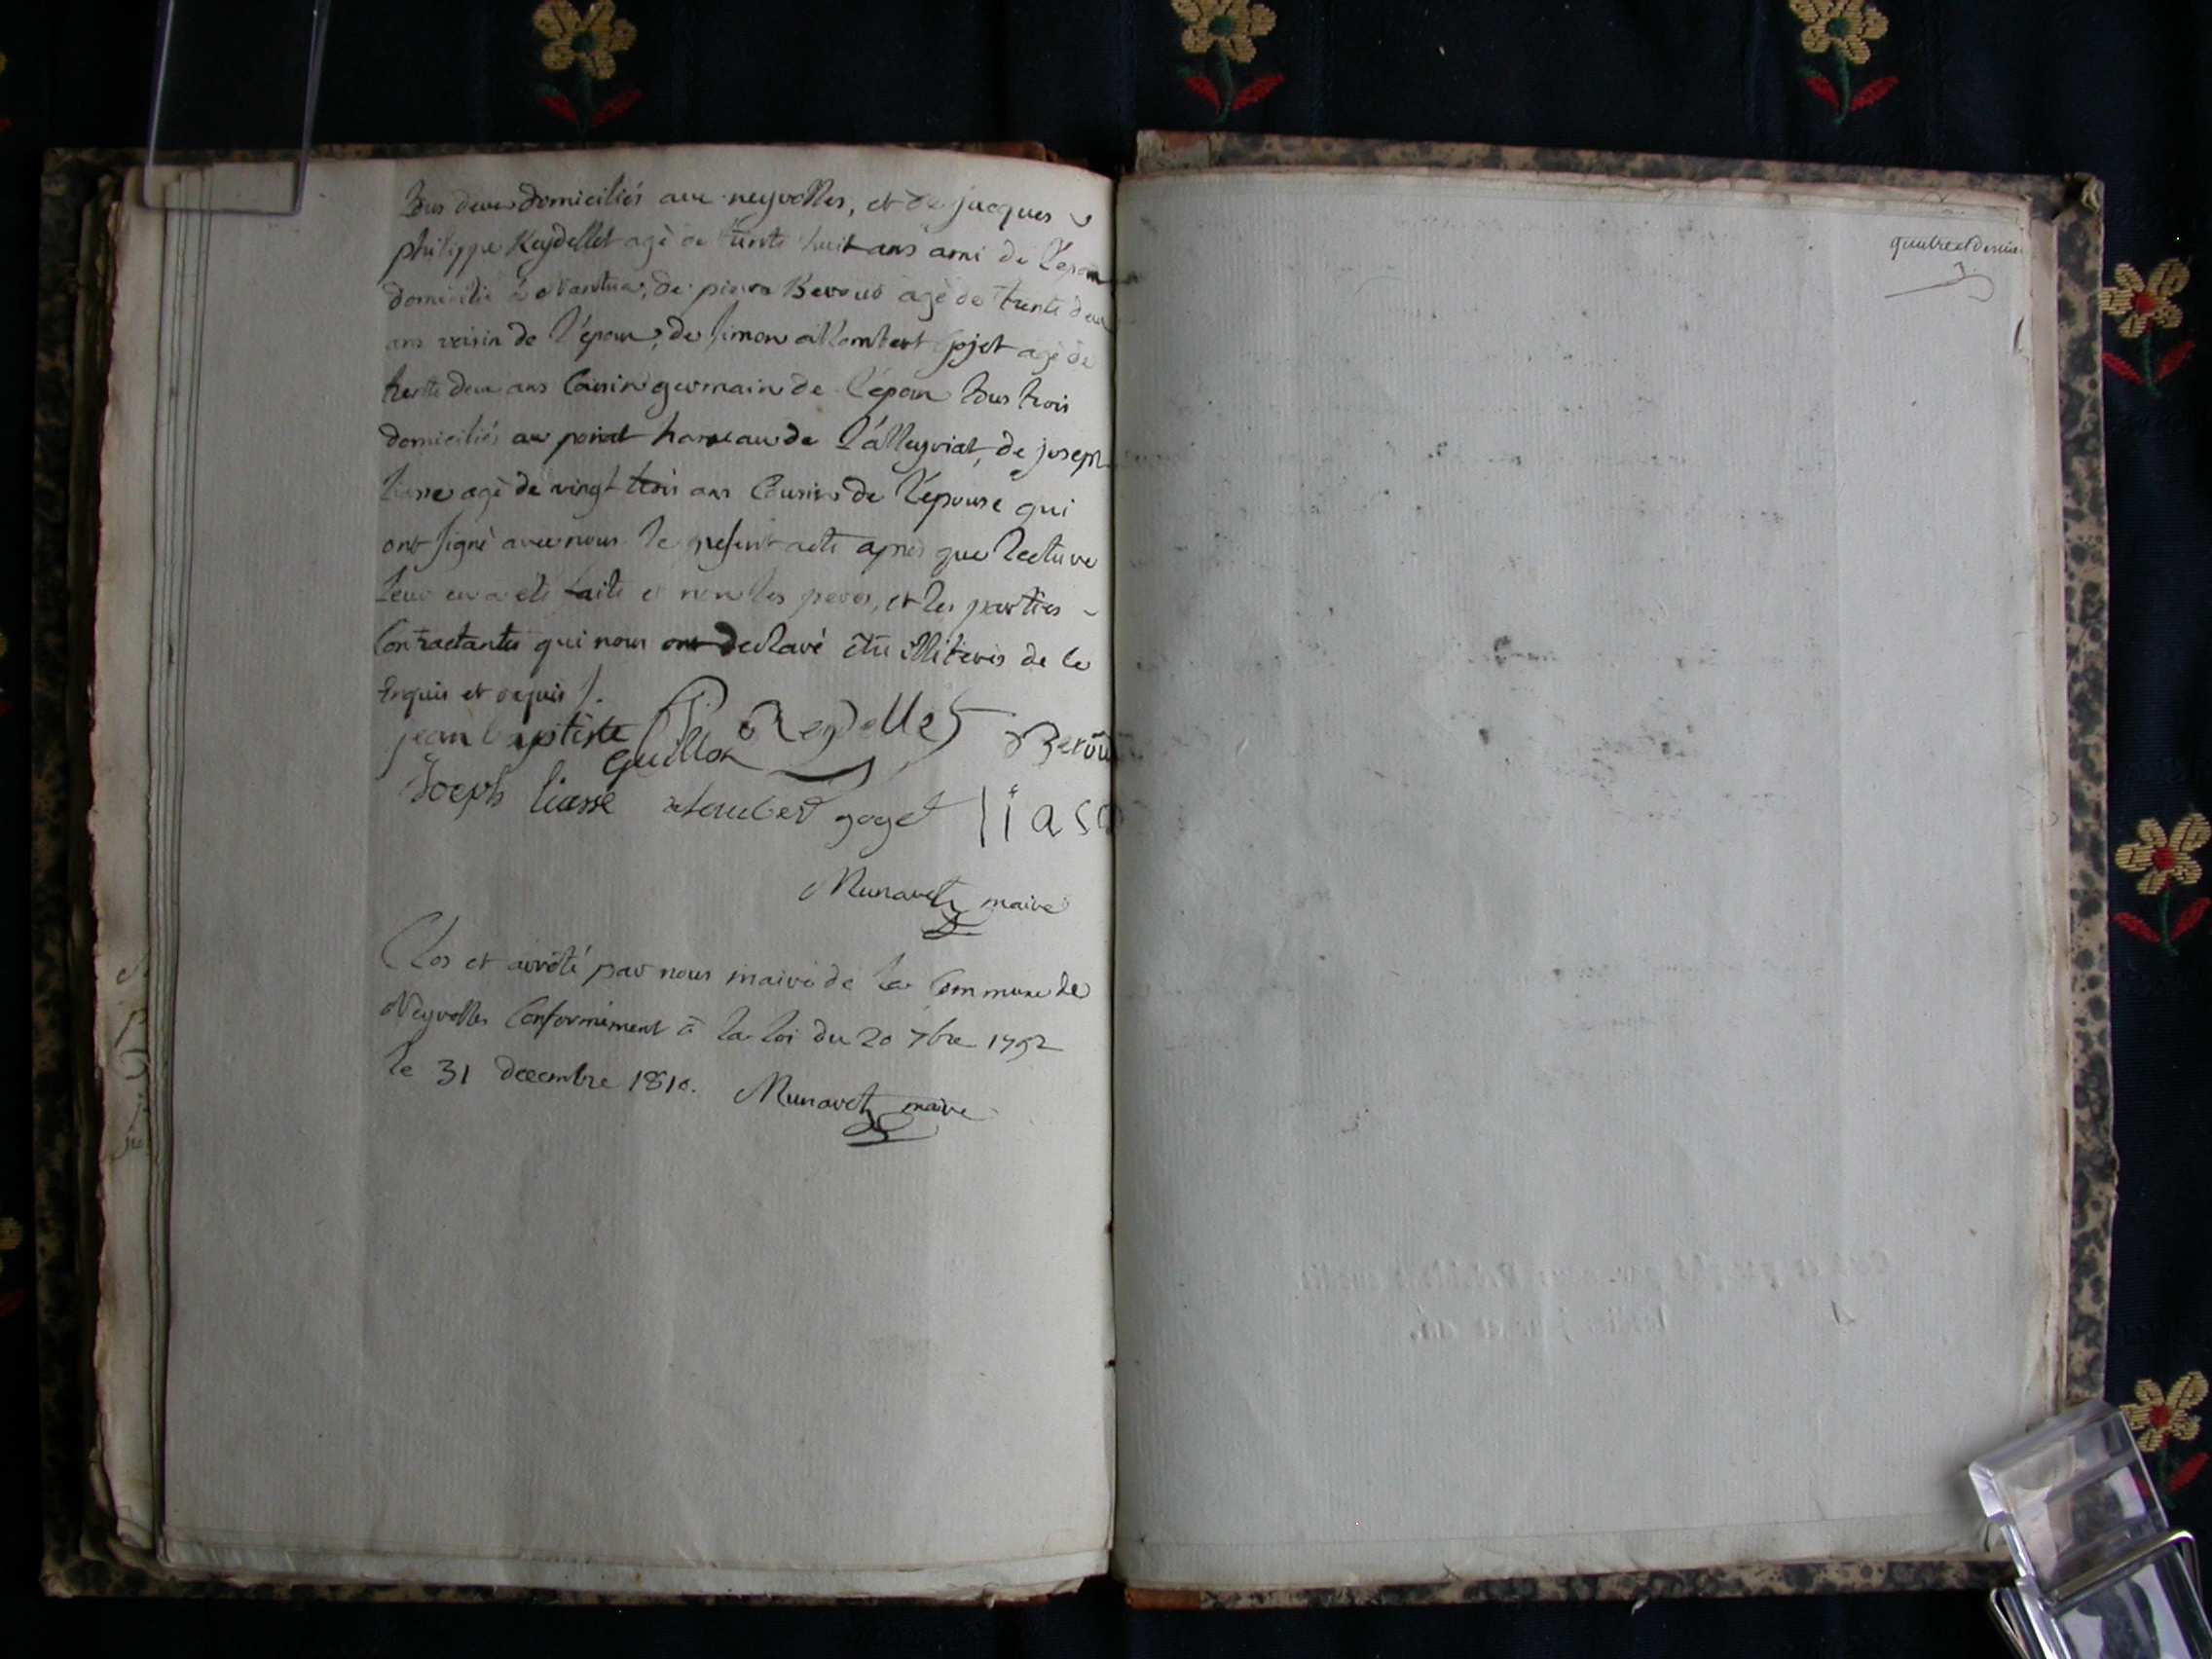 tous deux domiciliés aux neyrolles, et de jacques
philippe Reydellet agé de trente huit ans ami de l'epoux
domicilié à Nantua, de pierre Beroud agé de trente deux
ans voisin de l'époux, de simon allombert gojet agé de
trente deux ans Cousin germain de l'époux tous trois
domiciliés au hameau de l'alleyriat, de joseph
liasse agé de vingt trois ans Cousin de l'épouse qui
ont signé avec nous le present acte après que lecture
leur en a été faite et non les peres, et les parties
Contractantes qui nous ont declaré être illiteres de ce
Enquis et requis /.
jean baptiste guillon Reydellet Berou
Joseph liasse alombert goget liass
Munavet maire
Clos et arrêté par nous maire de la Commune de
Neyrolles Conformément à la loi du 20 7bre 1792
le 31 decembre 1810. Munavet maire
quatre et dernier